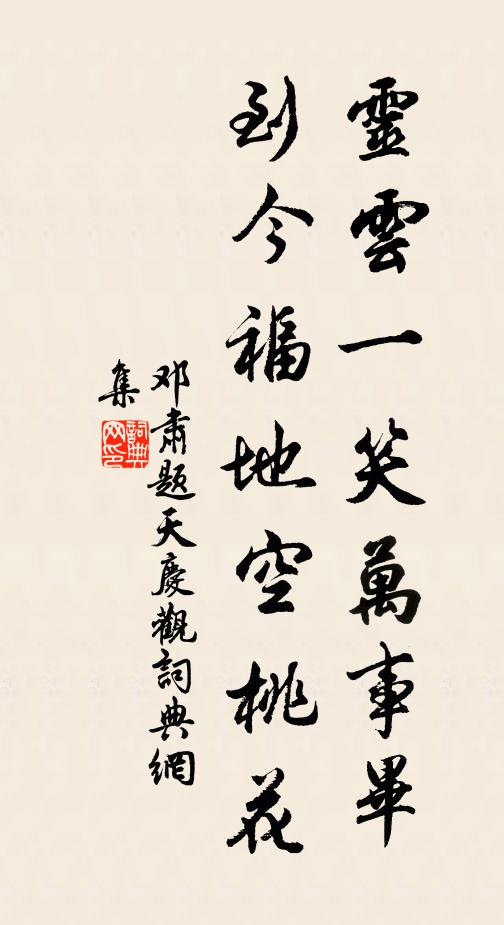 靈雲一笑萬事畢
到今福地空桃花
邓肅題天慶觀詞典網
集
詞典網印